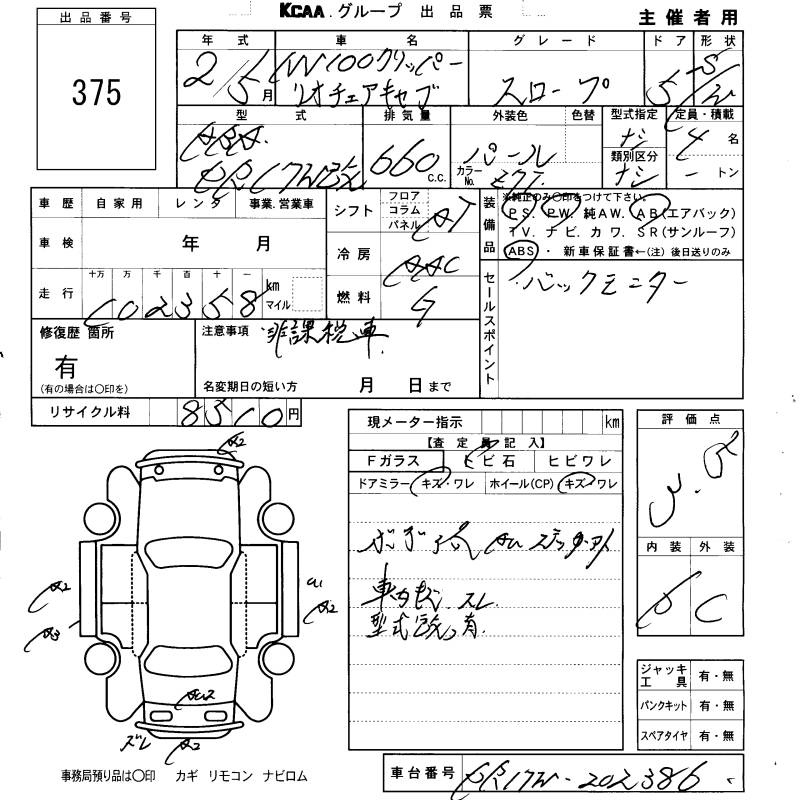 KCAA.グループ 出品票
主催者用
出品番号
375
年式 車名 グレード ドア 形状
2/5月 NV100クリッパー
リオチェアキャブ スロープ 5
型式 排気量 外装色 色替 型式指定 定員・積載
660 c.c. パール カラーNo. ナシ 4名
類別区分 ナシ ートン
車歴 自家用 レンタ 事業.営業車
シフト フロア コラム パネル AT
装備品 ※純正のみ〇印をつけて下さい。
PS. PW. 純AW. AB(エアバック)
TV. ナビ. カワ. SR(サンルーフ)
ABS・新車保証書←(注)後日送りのみ
車検 年 月
冷房 AAC
走行 十万 万 千 百 十 一
102358 km マイル
燃料 G
セールスポイント
バックモニター
修復歴 箇所
有
(有の場合は〇印を)
注意事項 非課税車
名変期日の短い方 月 日まで
リサイクル料 8510円
現メーター指示 km
【査定員記入】
Fガラス ヒビ石 ヒビワレ
ドアミラー キズ・ワレ ホイール(CP) キズ・ワレ
車内キズ スレ
型式 有
評価点
3.5
内装 外装
D C
ジャッキ工具 有・無
パンクキット 有・無
スペアタイヤ 有・無
A2
A2
A3
a1
A2
ズレ
A2
事務局預り品は〇印 カギ リモコン ナビロム
車台番号 DR17W-202386